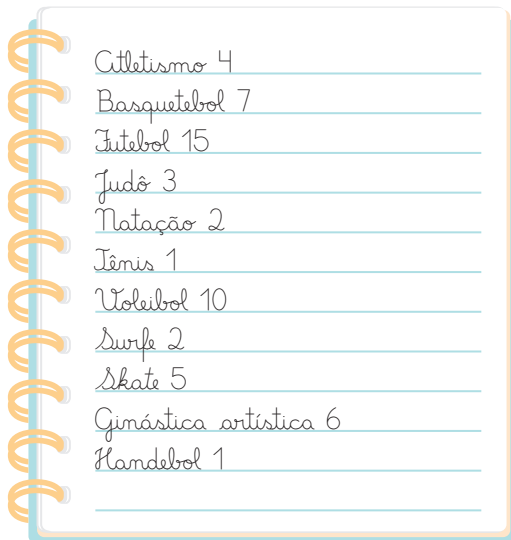 Atletismo 4
Basquetebol 7
Futebol 15
Judô 3
Natação 2
Tênis 1
Voleibol 10
Surfe 2
Skate 5
Ginástica artística 6
Handebol 1